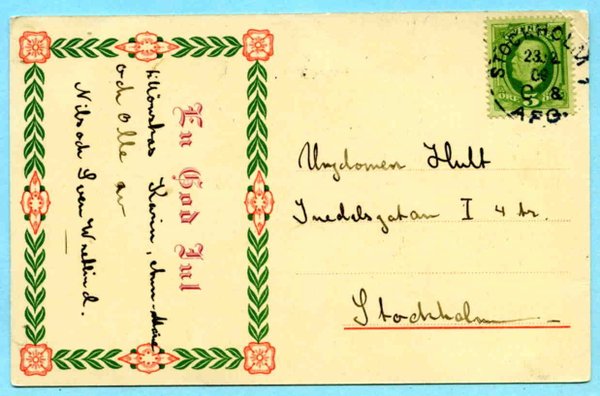 En God Jul
tillönskas Karin, Ann-Marie
och Olle av
Nils och Sven Wretlind.
STOCKHOLM 1
23.12
AFG.
ÖRE 5
Ungdomen Hult
Inedalsgatan I 4 tr.
Stockholm